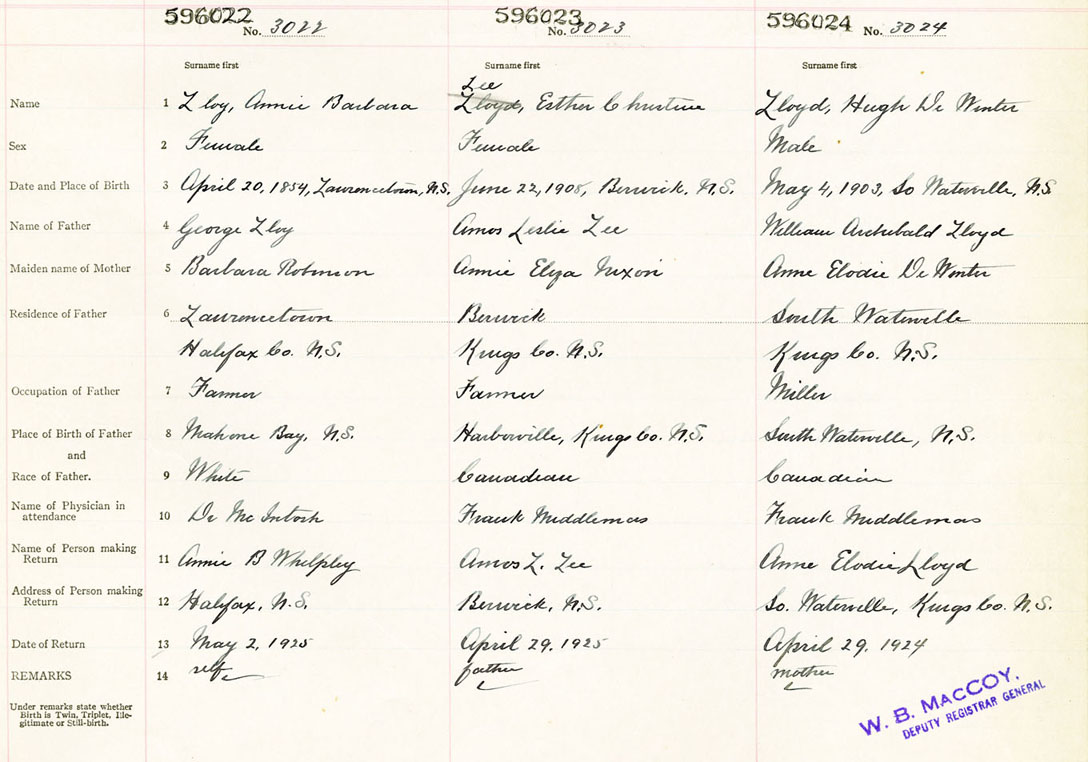 596022 596023 596024
No. 3022 No. 3023 No. 3024
Surname first Surname first Surname first
Lee
Name 1 Lloy, Annie Barbara Lloyd, Esther Christine Lloyd, Hugh De Winter
Sex 2 Female Female Male
Date and Place of Birth 3 April 20, 1854, Lawrencetown, N.S. June 22, 1908, Berwick, N.S. May 4, 1903, So Waterville, N.S
Name of Father 4 George Lloy Amos Leslie Lee William Archibald Lloyd
Maiden name of Mother 5 Barbara Robinson Annie Eliza Nixon Anne Elodie De Winter
Residence of Father 6 Lawrencetown Berwick South Waterville
Halifax Co. N.S. Kings Co. N.S. Kings Co. N.S.
Occupation of Father 7 Farmer Farmer Miller
Place of Birth of Father 8 Mahone Bay, N.S. Harborville, Kings Co. N.S. South Waterville, N.S.
and
Race of Father. 9 White Canadian Canadian
Name of Physician in
attendance 10 Dr McIntosh Frank Middlemas Frank Middlemas
Name of Person making
Return 11 Annie B Whelpley Amos L. Lee Anne Elodie Lloyd
Address of Person making
Return 12 Halifax, N.S. Berwick, N.S. So. Waterville, Kings Co. N.S.
Date of Return 13 May 2, 1925 April 29, 1925 April 29, 1924
REMARKS 14 self father mother
Under remarks state whether
Birth is Twin, Triplet, Ille-
gitimate or Still-birth.
W. B. MACCOY.
DEPUTY REGISTRAR GENERAL